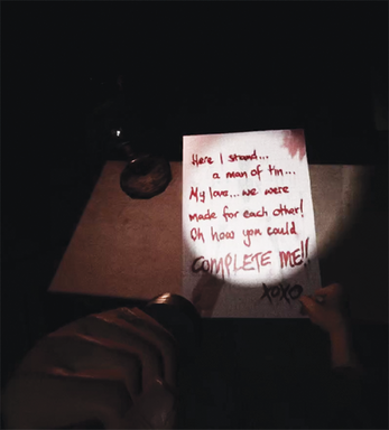 Here I stand...
a man of tin...
My love... we were
made for each other!
Oh how you could
COMPLETE ME!!
XOXO